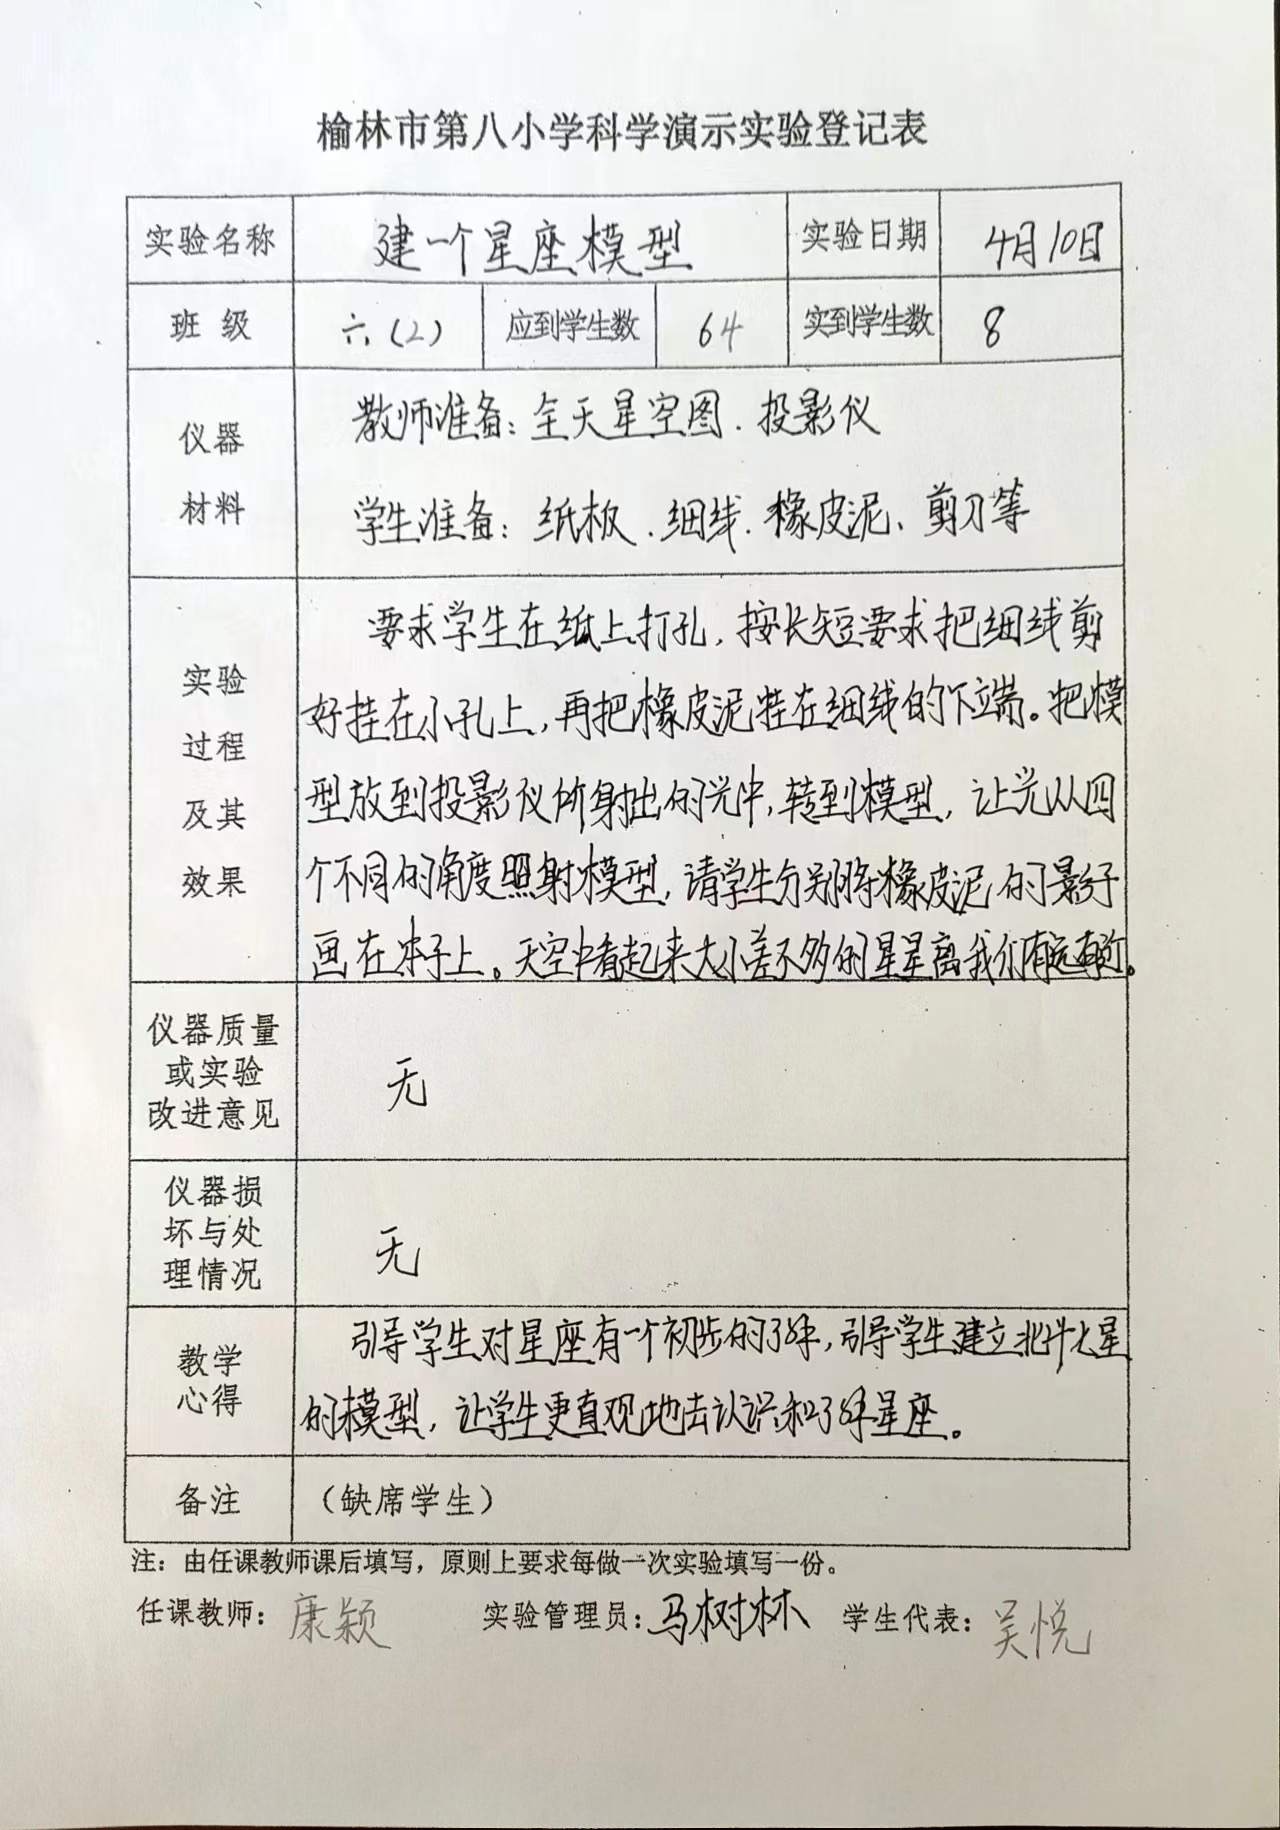 榆林市第八小学科学演示实验登记表
实验名称 建一个星座模型 实验日期 4月10日
班 级 六(2) 应到学生数 64 实到学生数 8
仪器
材料
教师准备：全天星空图.投影仪
学生准备：纸板.细线.橡皮泥、剪刀等
实验
过程
及其
效果
要求学生在纸上打孔，按长短要求把细线剪
好挂在小孔上，再把橡皮泥挂在细线的下端。把模
型放到投影仪所射出的光中，转到模型，让光从四
个不同的角度照射模型，请学生分别将橡皮泥的影子
画在本子上。天空中看起来大小差不多的星星离我们有远有近。
仪器质量
或实验
改进意见
无
仪器损
坏与处
理情况
无
教学
心得
引导学生对星座有一个初步的了解，引导学生建立北斗七星
的模型，让学生更直观地去认识和了解星座。
备注 （缺席学生）
注：由任课教师课后填写，原则上要求每做一次实验填写一份。
任课教师：康颖 实验管理员：马树林 学生代表：吴悦